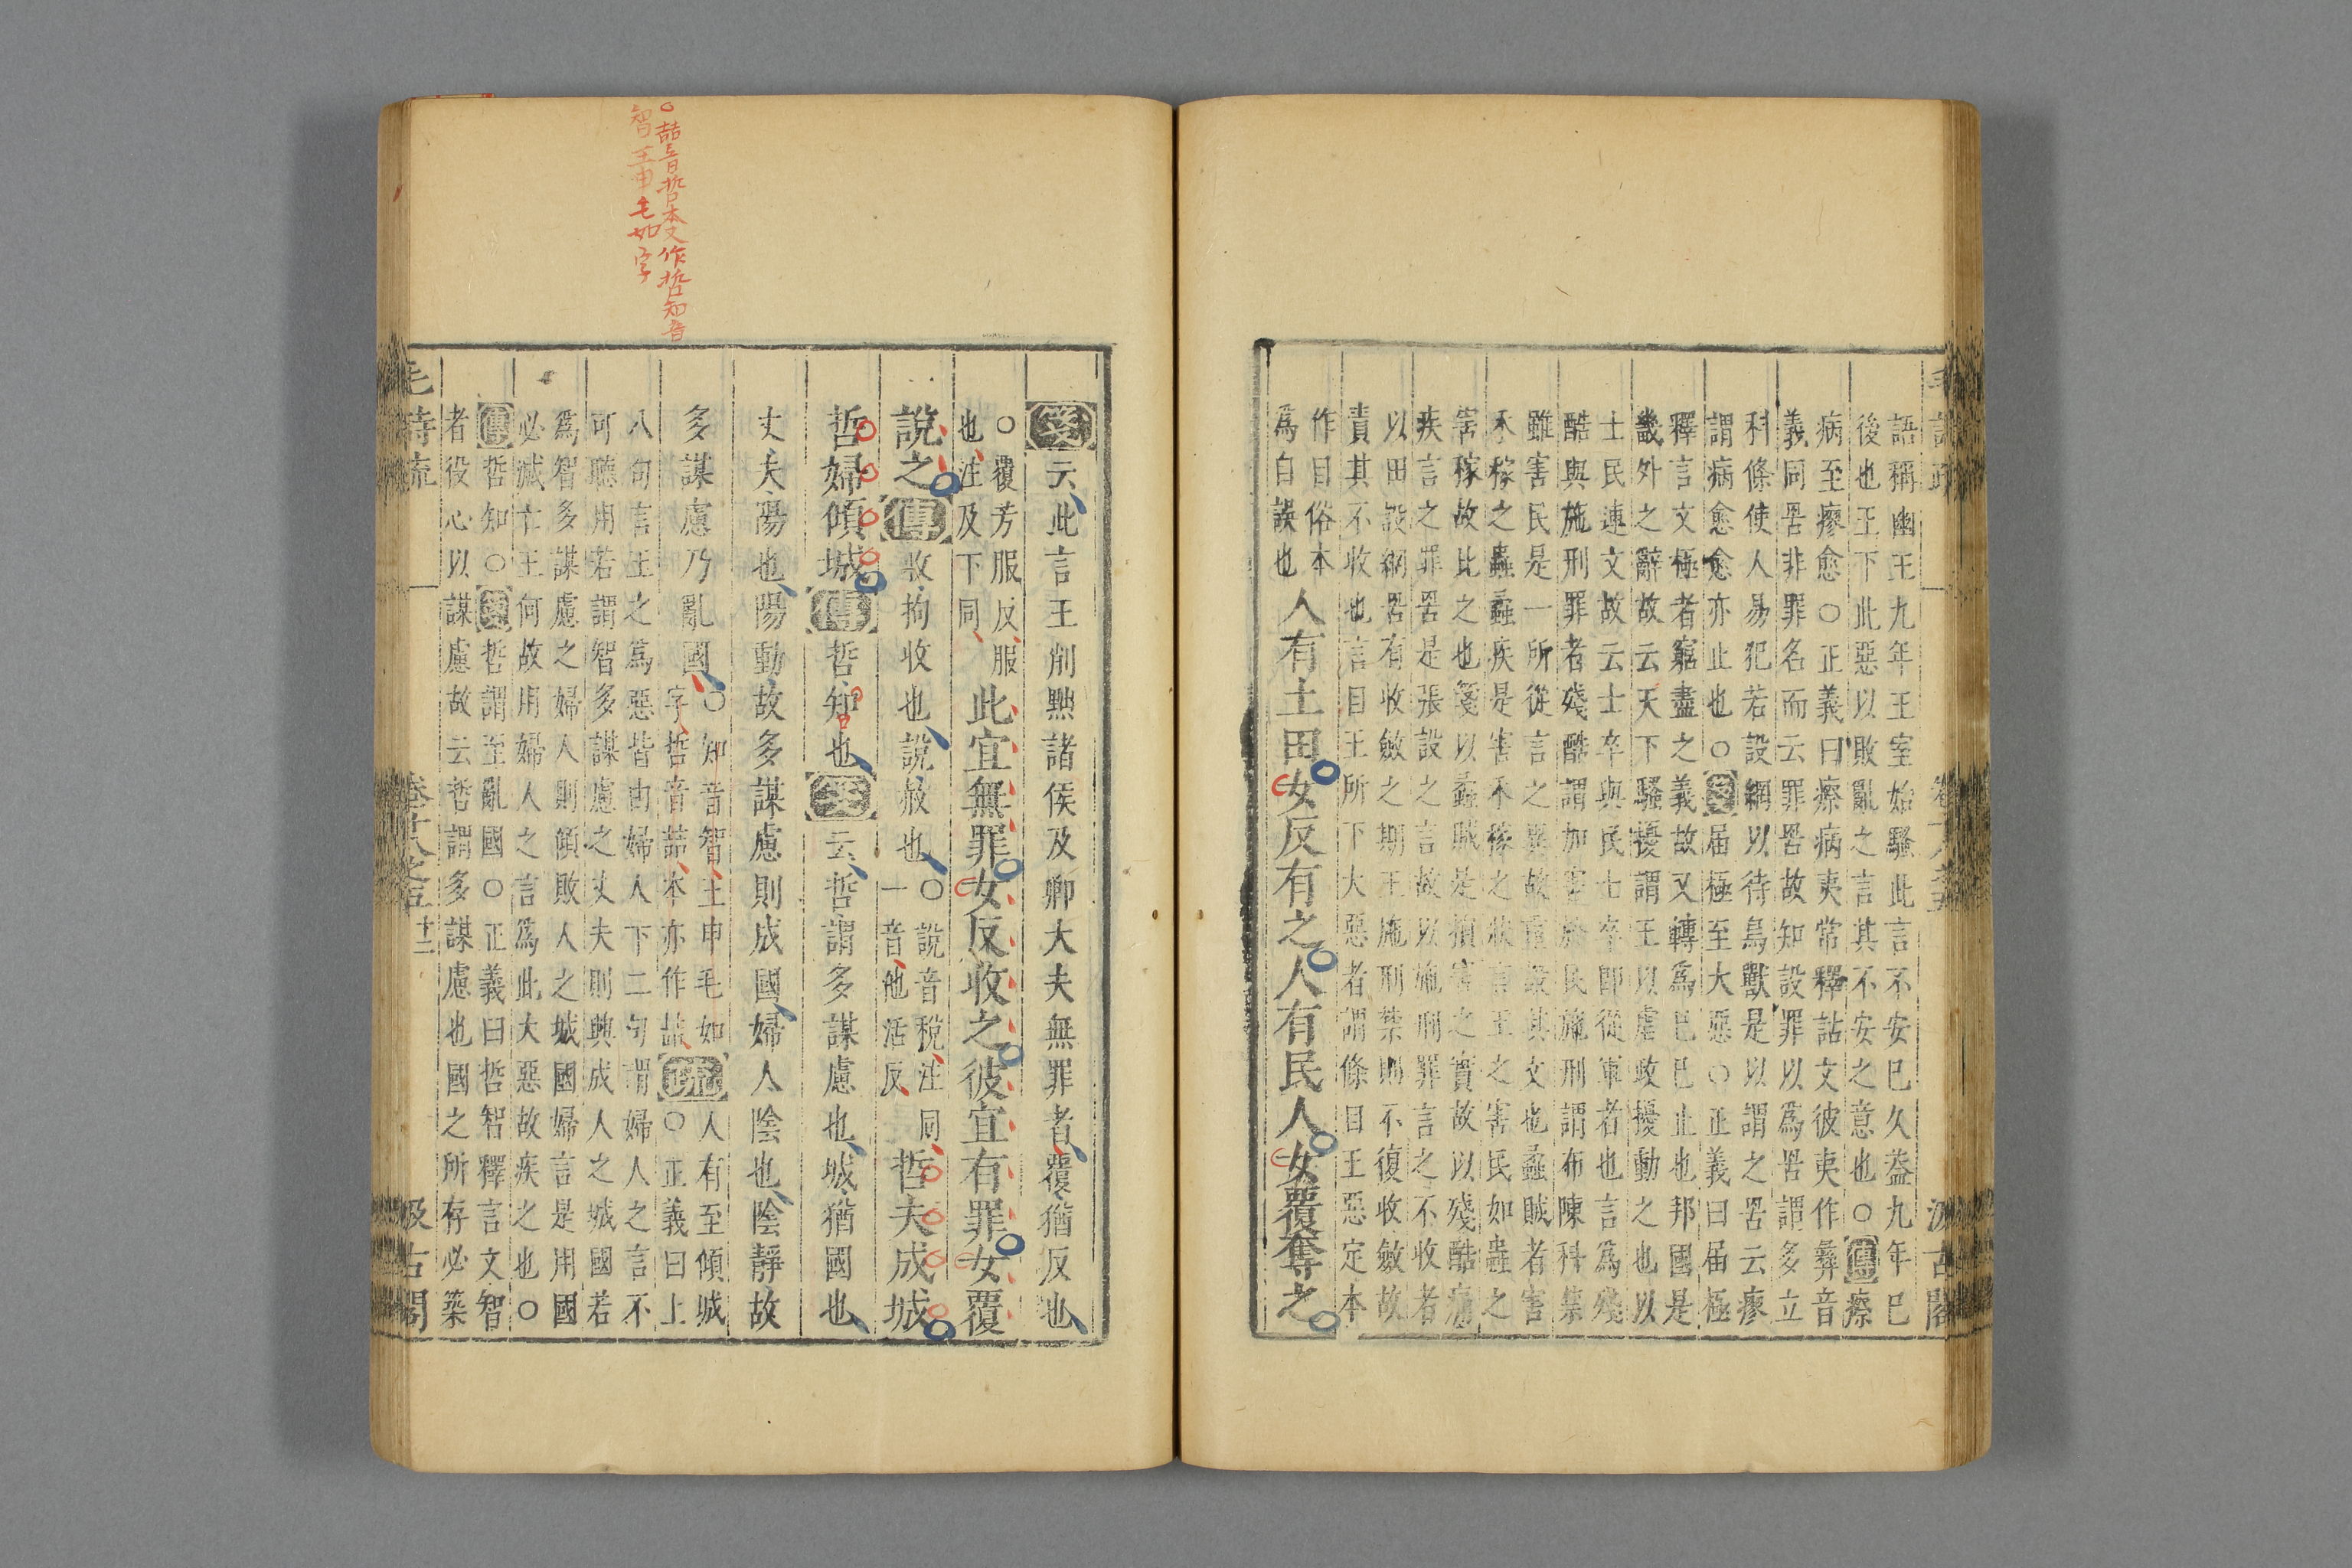 語稱幽王九年王室始騷此言不安巳久葢九年巳
後也王下此惡以敗亂之言其不安之意也○傳瘵
病至瘳愈○正義曰瘵病夷常釋詁文彼夷作彝音
義同罟非罪名而云罪罟故知設罪以爲罟謂多立
科條使人易犯若設網以待鳥獸是以謂之罟云瘳
謂病愈愈亦止也○箋届極至大惡○正義曰届極
釋言文極者窮盡之義故又轉爲巳巳止也邦國是
畿外之辭故云天下騷擾謂王以虐政擾動之也以
士民連文故云士卒與民士卒即從軍者也言爲殘
酷與施刑罪者殘酷謂加害於民施刑謂布陳科禁
雖害民是一所從言之異故重設其文也蟊賊者害
禾稼之蟲蟊疾是害禾稼之狀言王之害民如蟲之
害稼故比之也箋以蟊賊是損害之實故以殘酷痛
疾言之罪罟是張設之言故以施刑罪言之不收者
以田設網罟有收斂之期王施刑禁則不復收斂故
責其不收也言目王所下大惡者謂條目王惡定本
作目俗本
爲自誤也
人有土田女反有之人有民人女覆奪之
箋云此言王削黜諸侯及卿大夫無罪者覆猶反也
○覆芳服反服
也注及下同
此宜無罪女反收之彼宜有罪女覆
說之傳收拘收也說赦也
○說音稅注同
一音他活反
哲夫成城
哲婦傾城傳哲知也箋云哲謂多謀慮也城猶國也
丈夫陽也陽動故多謀慮則成國婦人陰也陰靜故
多謀慮乃亂國
○知音智王申毛如
字哲音喆本亦作喆
疏
人有至傾城
○正義曰上
八句言王之爲惡皆由婦人下二句謂婦人之言不
可聽用若謂智多謀慮之丈夫則興成人之城國若
爲智多謀慮之婦人則傾敗人之城國婦言是用國
必滅亡王何故用婦人之言爲此大惡故疾之也○
傳哲知○箋哲謂至亂國○正義曰哲智釋言文智
者役心以謀慮故云哲謂多謀慮也國之所存必築
毛詩疏
卷十八之五
十二
汲古閣
○喆音哲本又作哲知音
智王申毛如字